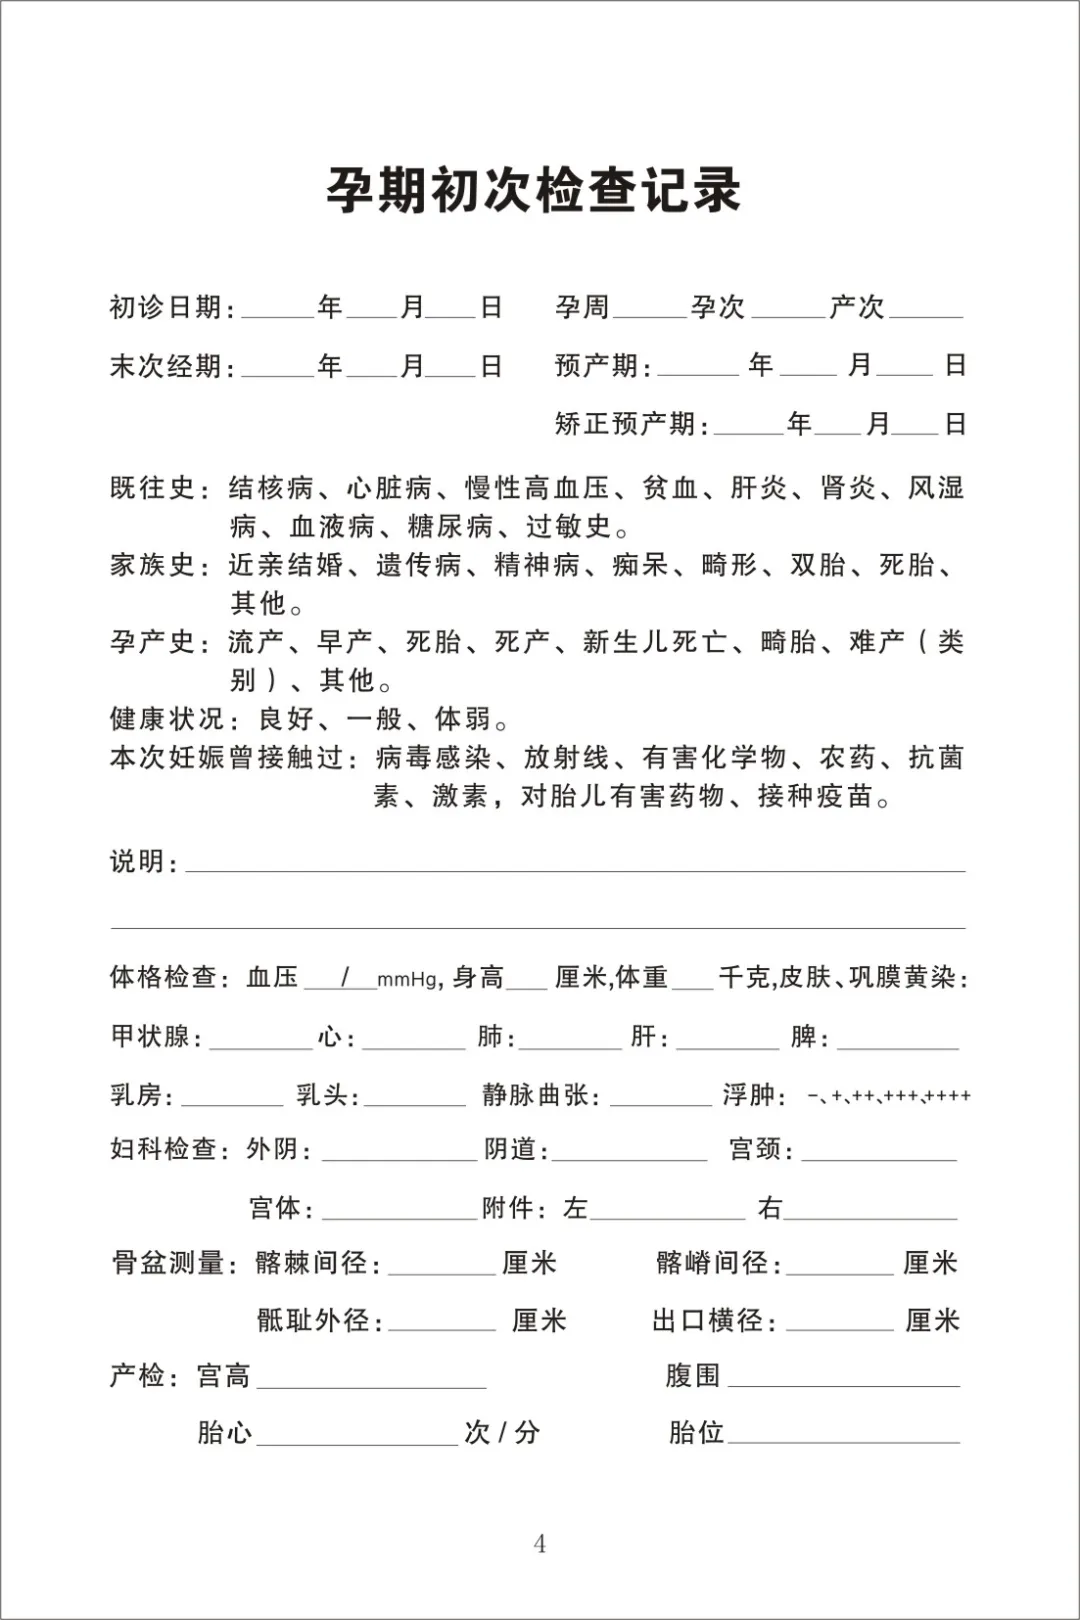 孕期初次检查记录
初诊日期:______年____月____日 孕周______孕次______产次______
末次经期:______年____月____日 预产期:______年____月____日
矫正预产期:______年____月____日
既往史：结核病、心脏病、慢性高血压、贫血、肝炎、肾炎、风湿
病、血液病、糖尿病、过敏史。
家族史：近亲结婚、遗传病、精神病、痴呆、畸形、双胎、死胎、
其他。
孕产史：流产、早产、死胎、死产、新生儿死亡、畸胎、难产（类
别）、其他。
健康状况：良好、一般、体弱。
本次妊娠曾接触过：病毒感染、放射线、有害化学物、农药、抗菌
素、激素，对胎儿有害药物、接种疫苗。
说明:______
体格检查：血压___/___mmHg,身高____厘米,体重____千克,皮肤、巩膜黄染:
甲状腺:________心:________肺:________肝:________脾:________
乳房:________乳头:________静脉曲张:________浮肿：-、+、++、+++、++++
妇科检查：外阴:________阴道:________宫颈:________
宫体:________附件：左________右________
骨盆测量：髂棘间径:________厘米 髂嵴间径:________厘米
骶耻外径:________厘米 出口横径:________厘米
产检：宫高________ 腹围________
胎心________次/分 胎位________
4